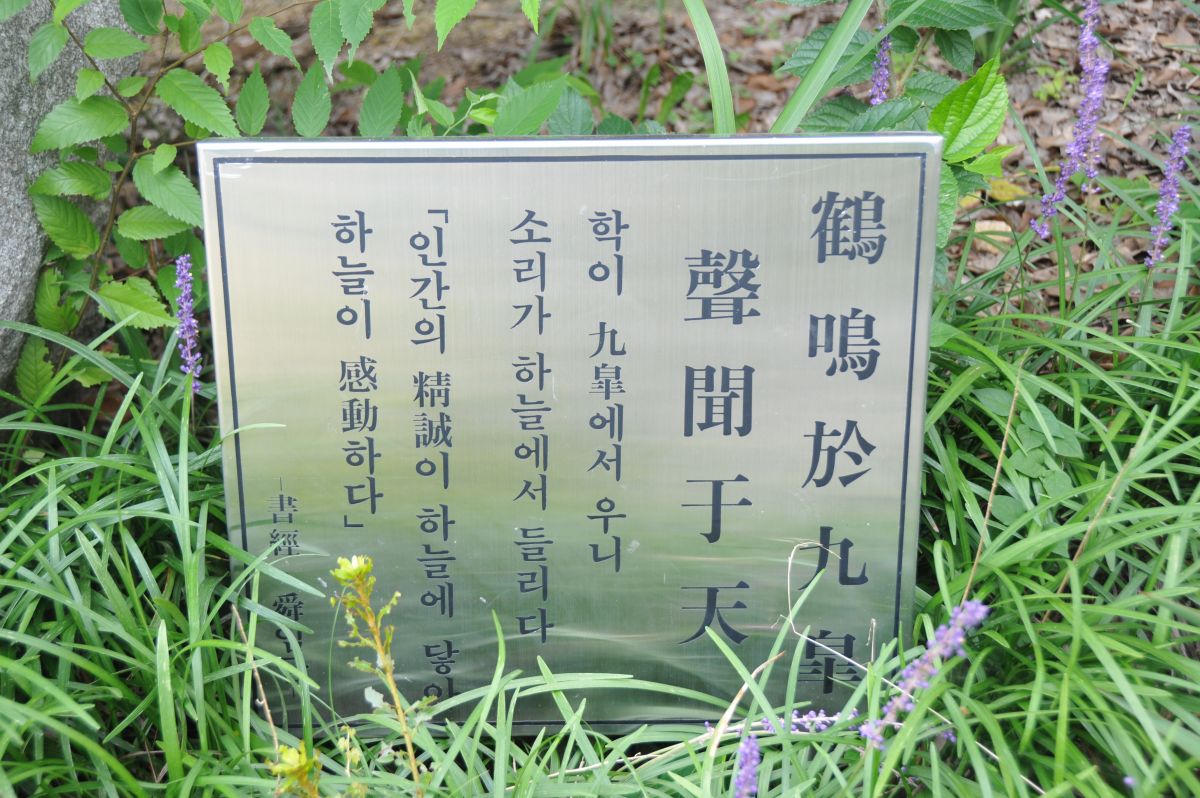 鶴鳴於九皐
聲聞于天
학이 九皐에서 우니
소리가 하늘에서 들리다
「인간의 精誠이 하늘에 닿아
하늘이 感動하다」
-書經 舜